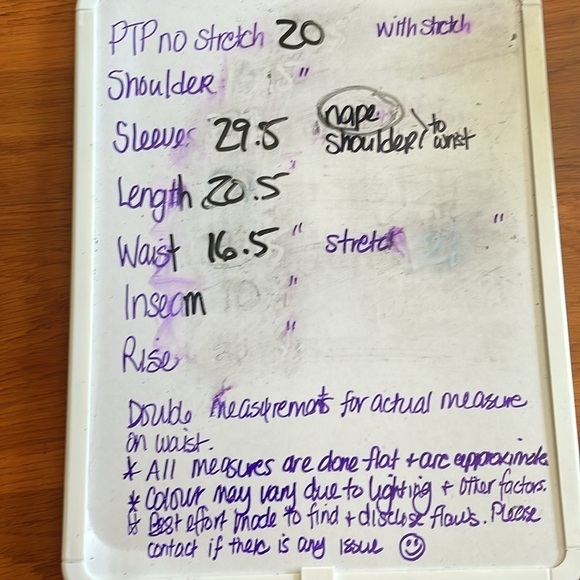 PTP no stretch 20 with stretch
Shoulder "
Sleeves 29.5 nape
shoulder to wrist
Length 20.5 "
Waist 16.5 " stretch "
Inseam "
Rise "
Double measuremats for actual measure
on waist.
* All measures are done flat + are approximate
* Colour may vary due to lighting + other factors.
* Best effort made to find + disclose flaws. Please
contact if there is any issue ☺